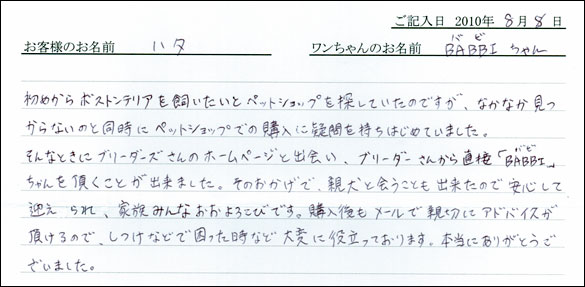 ご記入日 2010年 8月 8日
お客様のお名前 ハタ ワンちゃんのお名前 BABBI ちゃん
バビ
初めからボストンテリアを飼いたいとペットショップを探していたのですが、なかなか見つ
からないのと同時にペットショップでの購入に疑問を持ちはじめていました。
そんなときにブリーダーズさんのホームページと出会い、ブリーダーさんから直接「BABBI」
バビ
ちゃんを頂くことが出来ました。そのおかげで、親犬と会うことも出来たので安心して
迎えられ、家族みんなおおよろこびです。購入後もメールで親切にアドバイスが
頂けるので、しつけなどで困った時など大変に役立っております。本当にありがとうご
ざいました。